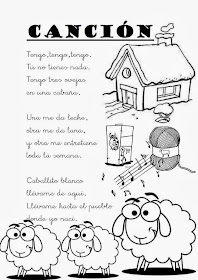 CANCIÓN
Tengo,tengo,tengo.
Tú no tienes nada.
Tengo tres ovejas
en una cabaña.
Una me da leche,
otra me da lana,
y otra me entretiene
toda la semana.
Caballito blanco
llévame de aquí.
Llévame hasta el pueblo
donde yo nací.